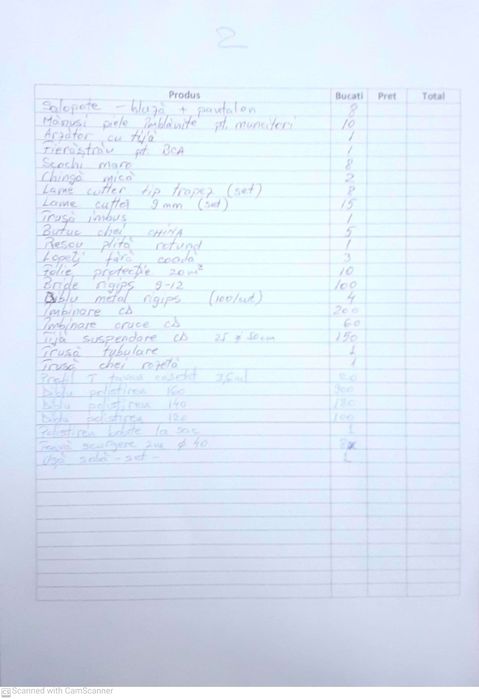 2
Produs Bucati Pret Total
Salopete - bluză + pantalon 8
Mănuși piele îmblănite pt. muncitori 10
Arzător cu tijă 1
Fierăstrău pt. BCA 1
Scochi maro 8
Chingă mică 2
Lame cutter tip trapez (set) 8
Lame cutter 9 mm (set) 15
Trusă imbus 1
Butuc chei CHINA 5
Reșou plită rotund 1
Lopeți fără coadă 3
Folie protecție 20 m² 10
Bride rigips 9-12 100
Diblu metal rigips (100/set) 4
Îmbinare CD 200
Îmbinare cruce CD 60
Tijă suspendare CD 25 50cm 150
Trusă tubulare 1
Trusă chei rozetă 1
Profil T tavan casetat 3,6 ml
Diblu polistiren 160
Diblu polistiren 140
Diblu polistiren 120 100
Polistiren la sac 1
Țeavă scurgere 2m ø 40
Ușă sobă - set - 1
Scanned with CamScanner